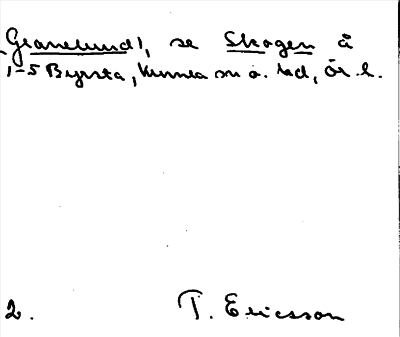 Granelund 1, se Skogen å
1-5 Byrsta, Kumla sn o. hd, Ör. l.
2. T. Ericsson